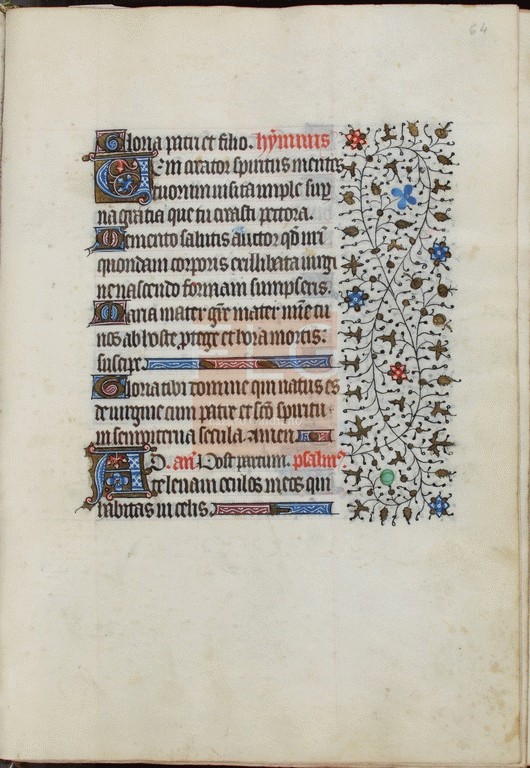 64
Gloria patri et filio. hymnus
Veni creator spiritus mentes
tuorum visita imple supͥ
na gratia que tu creasti pectora.
Memento salutis auctor qͩ nr̄i
quondam corporis ex illibata virgi
ne nascendo formam sumpseris.
Maria mater gr̄e mater mīe tu
nos ab hoste ꝓtege et hora mortis
suscipe
Gloria tibi domine qui natus es
de virgine cum patre et sc̄o spiritu
in sempiterna secula. Amen.
AD. an̄. Post partum. psalmꝰ.
te levavi oculos meos qui
habitas in celis